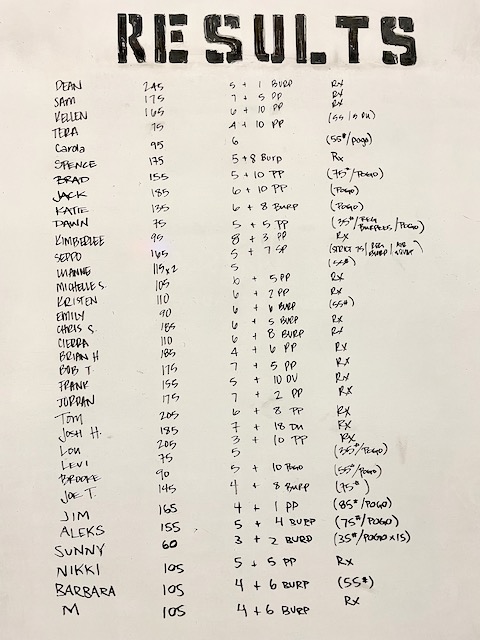 RESULTS
DEAN 245 5 + 1 BURP Rx
SAM 175 7 + 5 PP Rx
KELLEN 165 6 + 10 PP Rx
TERA 75 4 + 10 PP (55 / S DU)
Carola 95 6 (55#/POGO)
SPENCE 175 5 + 8 Burp Rx
BRAD 155 5 + 10 PP (75#/POGO)
JACK 185 6 + 10 PP (POGO)
KATIE 135 6 + 8 BURP (POGO)
DAWN 75 5 + 5 PP (35#/REG BURPEES/POGO)
KIMBERLEE 95 8 + 3 PP Rx
SEPPO 165 5 + 7 SP (STRICT 75/REG BURP/AIR SQUAT)
LUANNE 115x2 5 (55#)
MICHELLE S. 105 6 + 5 PP Rx
KRISTEN 110 6 + 2 PP Rx
EMILY 90 6 + 6 BURP (55#)
CHRIS S. 185 6 + 5 BURP Rx
CIERRA 110 6 + 8 BURP Rx
BRIAN H 185 4 + 6 PP Rx
BOB T. 175 7 + 5 PP Rx
FRANK 155 5 + 10 DU Rx
JORDAN 175 7 + 2 PP Rx
TOM 205 6 + 8 PP Rx
JOSH H. 185 7 + 18 DU Rx
LOU 205 3 + 10 PP Rx
LEVI 75 5 (35#/POGO)
BROOKE 90 5 + 10 POGO (55#/POGO)
JOE T. 145 4 + 8 BURP (75#)
JIM 165 4 + 1 PP (85#/POGO)
ALEKS 155 5 + 4 BURP (75#/POGO)
SUNNY 60 3 + 2 BURP (35#/POGO x 15)
NIKKI 105 5 + 5 PP Rx
BARBARA 105 4 + 6 BURP (55#)
M 105 4 + 6 BURP Rx